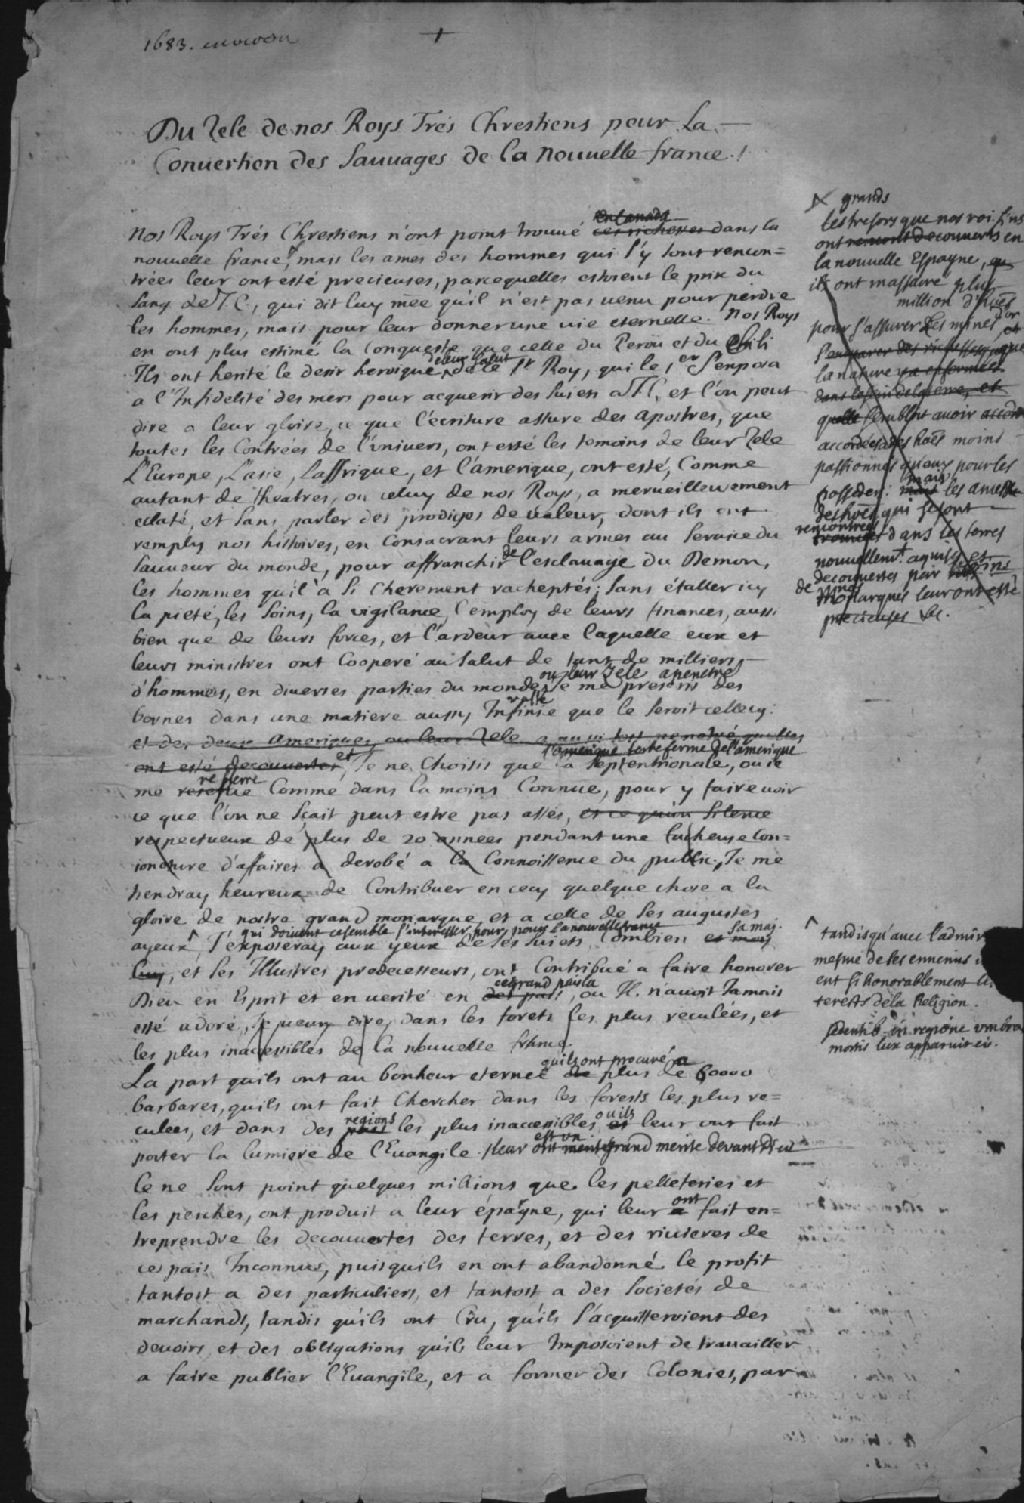 1683. environ
Du Zele de nos Roys Tres Chrestiens pour La
Conuertion des Sauuages de la Nouuelle france.
en Canada
Nos Roys Tres Chrestiens n'ont point trouué des richesses dans la
nouuelle france, mais les ames des hommes qui s'y sont rencon=
trées leur ont esté precieuses, parcequelles estoient le prix du
sang de J.C., qui dit luy mee qu'il n'est pas uenu pour perdre
les hommes, mais pour leur donner une uie eternelle. Nos Roys
en ont plus estimé la conqueste que celle du Perou et du Chili
Ils ont herité le desir heroique de ce St Roy, qui le 1er s'exposa
a l'Infidelité des mers pour acquerir des suiets a J.C, et l'on peut
dire a leur gloire, ce que l'écriture assure des apostres, que
toutes les Contrées de l'uniuers, ont esté les temoins de leur Zele
L'Europe, L'asie, L'affrique, et l'amerique, ont esté, Comme
autant de theatres, ou celuy de nos Roys, a merueilleusement
eclaté, et sans parler des prodiges de ualeur, dont ils ont
remply nos histoires, en Consacrant leurs armes au seruice du
sauueur du monde, pour affranchir de l'esclauage du Demon,
Ces hommes qu'il a si cherement racheptés; sans étaller icy
la pieté, les soins, la vigilance, l'employ de leurs finances, aussi
bien que de leurs forces, et l'ardeur auec laquelle eux et
leurs ministres ont Cooperé au salut de tant de milliers
ou leur Zele a penetré
d'hommes, en diuerses parties du monde, Je me prescris des
bornes dans une matiere aussy Infinie que le seroit celle cy.
et des deux Ameriques, ou leur Zele
ont esté decouuertes, et Je ne Choisis que la septentrionale, ou ie
resserre
me Comme dans la moins Connue, pour y faire uoir
ce que l'on ne sçait peut estre pas assés, et ce qu'un silence
respectueux de plus de 20 années pendant une facheuse Con=
ioncture d'affaires a derobé a la Connoissence du public, Je me
tiendray heureux de Contribuer en cecy quelque chose a la
gloire de nostre grand monarque, et a celle de ses augustes
ayeux J'exposeray aux yeux de ses suiets Combien sa maj.
luy, et ses Illustres predecesseurs, ont Contribué a faire honorer
ce grand pais la
Dieu en Esprit et en uerité en des pais, ou Il n'auoit Jamais
esté adoré, Je peux dire, dans les forets les plus reculées, et
les plus inaccessibles de la nouuelle france.
qu'ils ont procuré a
La part quils ont au bonheur eternel de plus de 60000
barbares, quils ont fait Chercher dans les forests les plus re=
regions ou ils
culees, et dans des les plus inaccessibles, et leur ont fait
est un
porter la lumiere de l'Euangile. grand merite deuant Dieu
Ce ne sont point quelques milions que les pelleteries et
ont
les pesches, ont produit a leur épargne, qui leur a fait en=
treprendre les decouuertes des terres, et des riuieres de
ces pais Inconnus, puisquils en ont abandonné le profit
tantost a des particuliers, et tantost a des societés de
marchands, tandis qu'ils ont Cru, qu'ils s'acquitteroient des
deuoirs, et des obligations qu'ils leur Imposoient de trauailler
a faire publier l'Euangile, et a former des Colonies, par
grands
les tresors que nos voisins
ont decouuerts en
la nouuelle Espagne,
ils ont massacré plus
million d'
pour s'assurer des mines d'or
la nature
dans le sein de la terre, et
semblent auoir
moins
passionnés pour les
posseder: mais les ames
qui se sont
rencontrées dans les terres
nouuellemt. aquises et
decouuertes par
de nos monarques leur ont esté
precieuses &c.
tandis qu'auec l'admir
mesme de ses ennemis
ent si honorablement
terests de la Religion.
sedentib. in regione umbra
mortis lux apparuit eis.